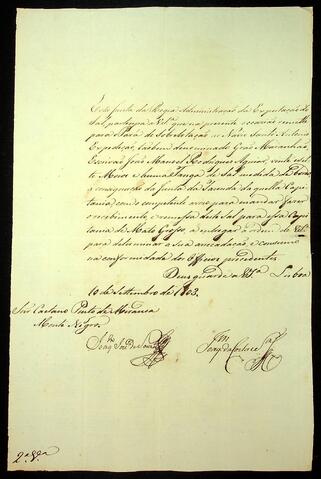 Esta Junta da Regia Administração da Exportação do
Sal, participa a V.S.ª que na presente occazião remette
para o Pará de sobrelotação no Navio Santo Antonio
Expedição, tambem denominado Grão Maranhão,
Escrivão João Manoel Rodrigues Aguiar, vinte e sete
Moios e huma fanga de Sal medida de Lisboa,
á consignação da Junta da Fazenda daquella Capi-
tania, com o competente avizo para mandar fazer
recebimento, e remessa deste Sal para essa Capi-
tania de Mato Grosso, a entregar á ordem de V.S.ª
para determinar a sua arrecadação, e consumo
na conformidade dos Officios precedentes
Deus guarde a V.S.ª Lisboa
10 de Settembro de 1803.
Snr Caetano Pinto de Miranda
Monte Negro
Joaq
2.ª V.ª